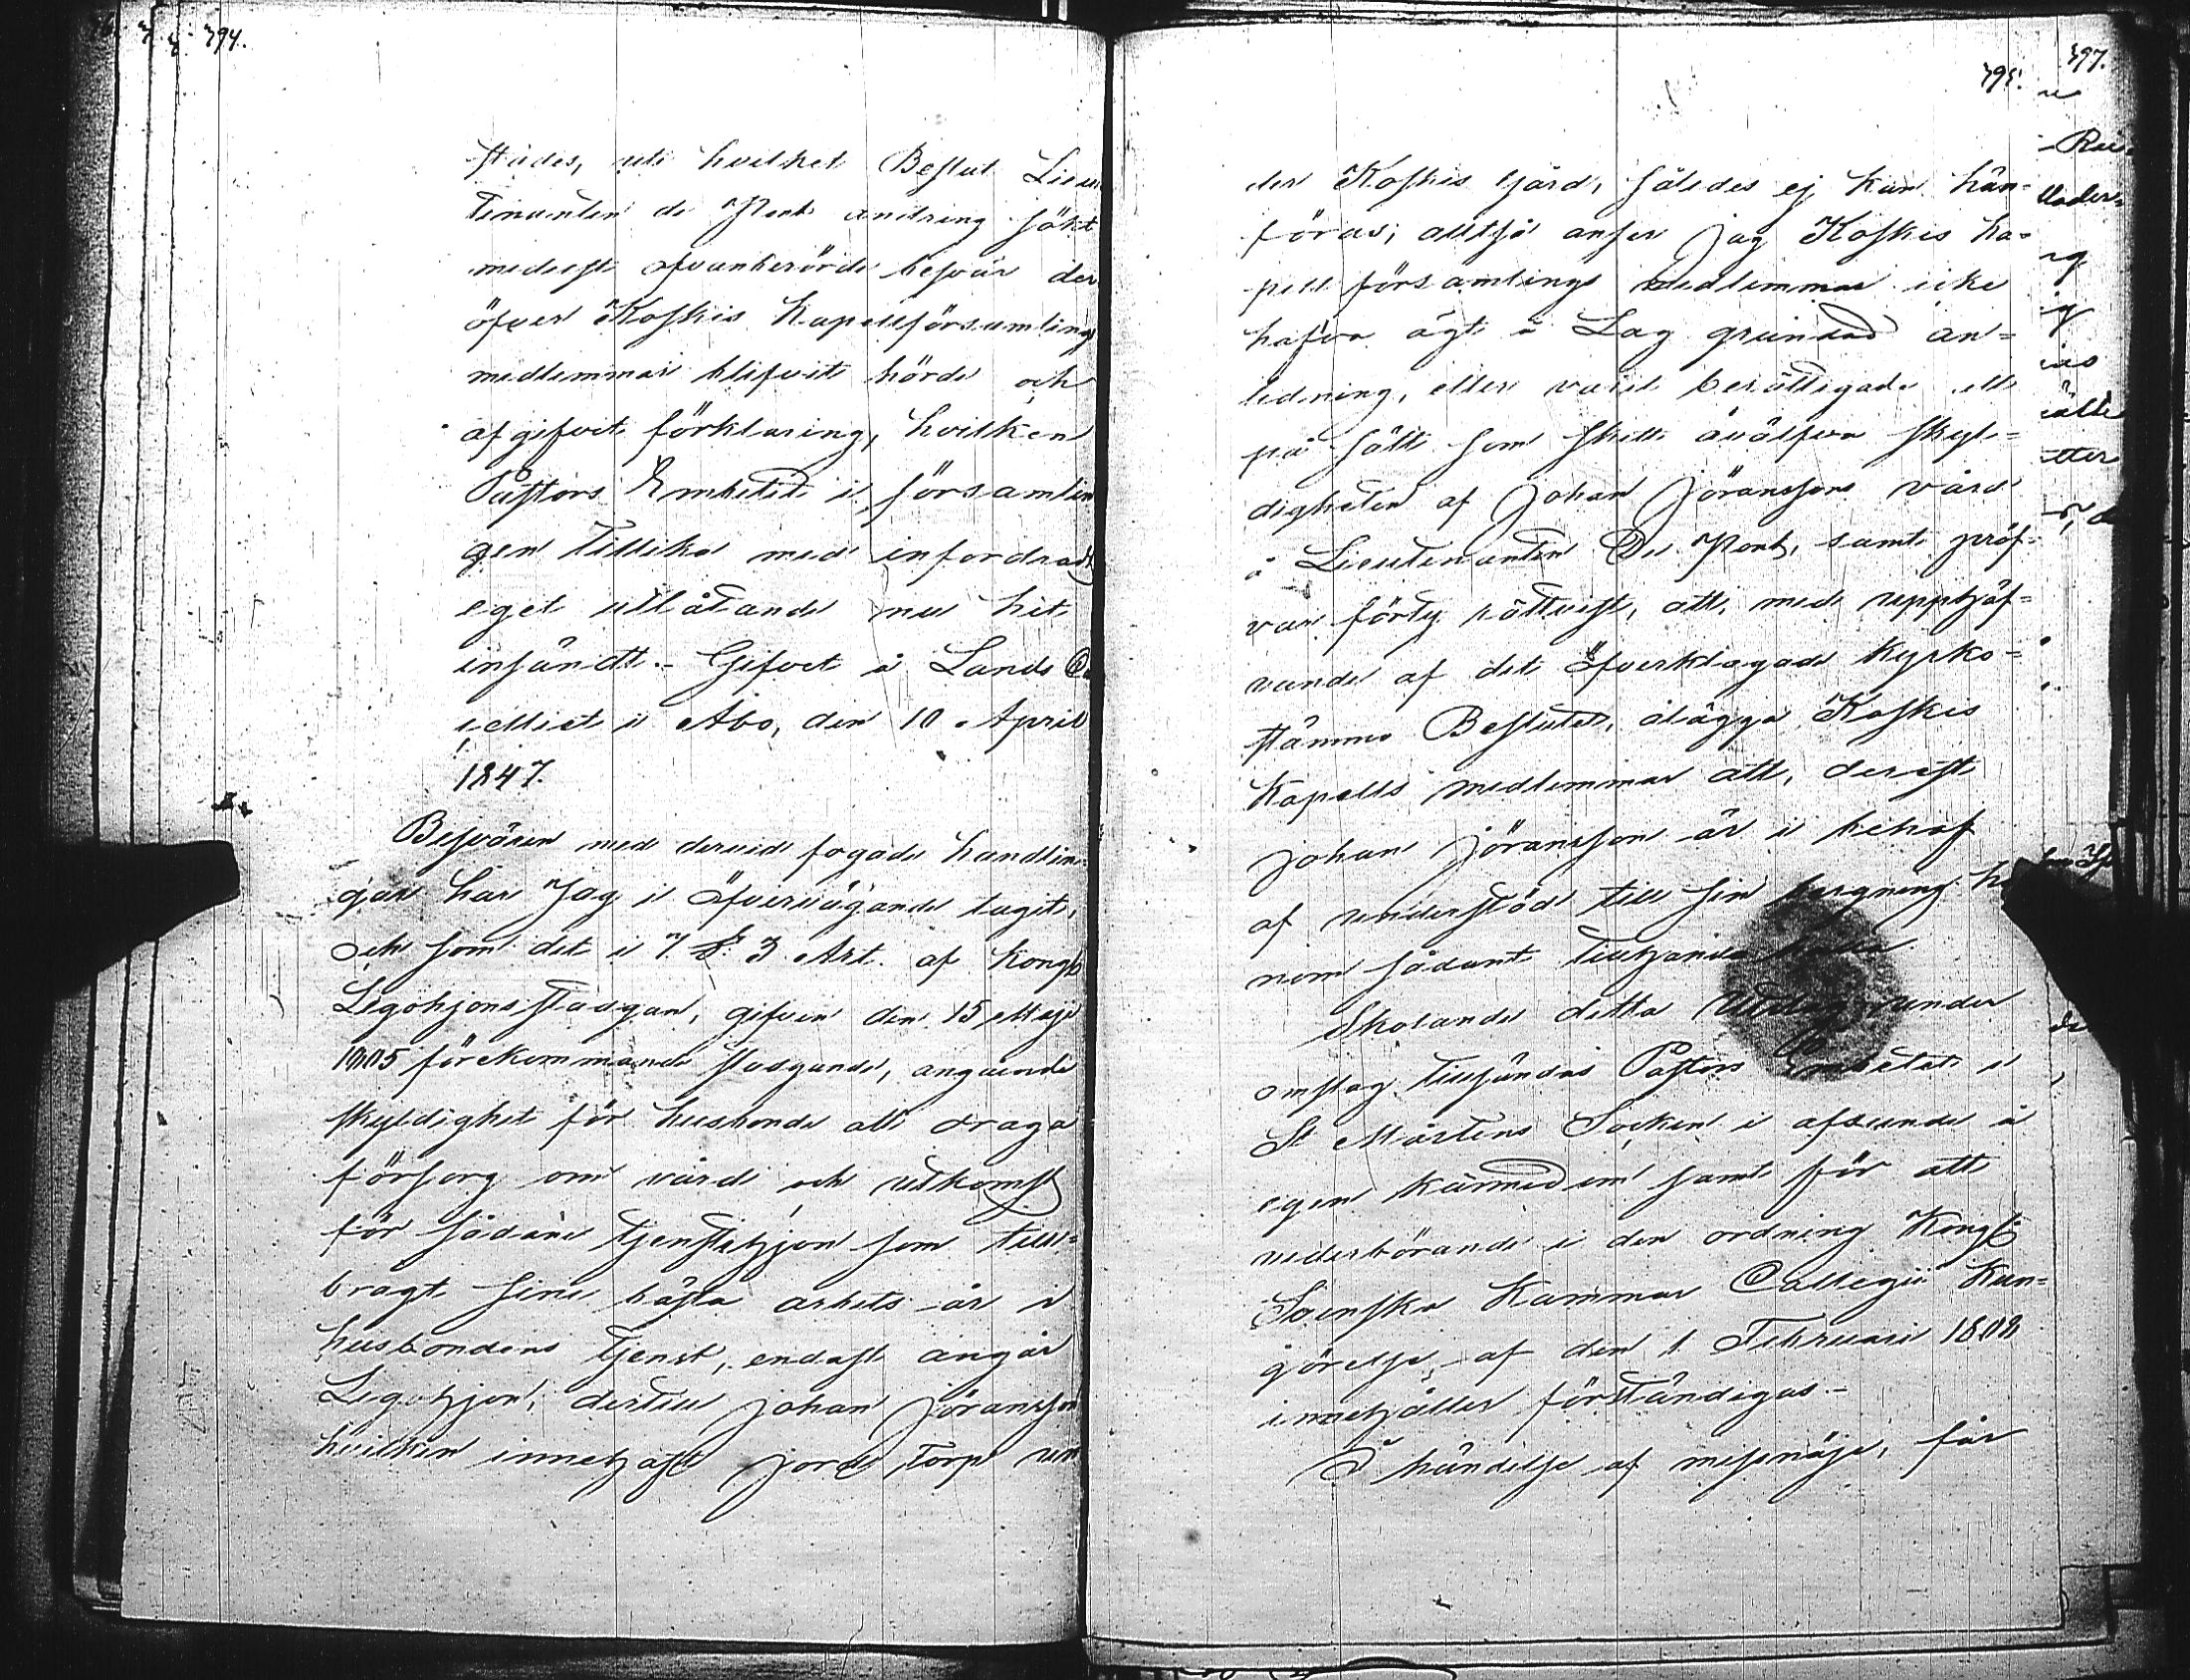 794.
städes, uti hvilket Beslut Lieu
tenanten de Pont ändring sökt
medelst ofvanberörde besvär der
öfver Koskis Kapellförsamlings
medlemmar blifvit hörde och
afgifvit förklaring, hvilken
Pastors Embetet i församlin
gen tillika med infordradt
eget utlåtande nu hit
insändt. Gifvet å Lands Ca
celliet i Åbo, den 10 April
1847.
Besvären med dervid fogade handlin
gar har Jag i öfvervägande tagit,
och som det i 7 §. 3 Art. af Kongl.
Legohjonsstadgan, gifven den 15 Maji
1805 förekommande stadgande, angående
skyldighet för husbonde att draga
försorg om vård och utkomst
för sådane tjenstehjon som till=
bragt sine bästa arbets år i
husbondens tjenst, endast angår
Legohjon, dertill Johan Jöransson
hvilken innehaft jord torp un
795.
der Koskis gård, således ej kan hän=
föras; alltså anser Jag Koskis Ka=
pellförsamlings medlemmar icke
hafva ägt å Lag grundad an=
ledning, eller varit berättigade att
på sätt som skett åvälfva skyl=
digheten af Johan Jöranssons vård
å Lieutenanten De Pont, samt pröf=
var förty rättvist, att, med upphäf=
vande af det öfverklagade Kyrko=
stämmo Beslutet, ålägga Koskis
Kapells medlemmar att, derest
Johan Jöransson är i behof
af understöd till sin bergning ho
nom sådant tillhanda
Skolande detta Utslag under
omslag tillsändas Pastors Embetet i
St Mårtens Socken i afseende å
egen kännedom samt för att
vederbörande i den ordning Kongl.
Svenska Kammar Collegii Kun=
görelse af den 1 Februarii 1802
innehåller förständigas.-
I händelse af missnöje, får
397.